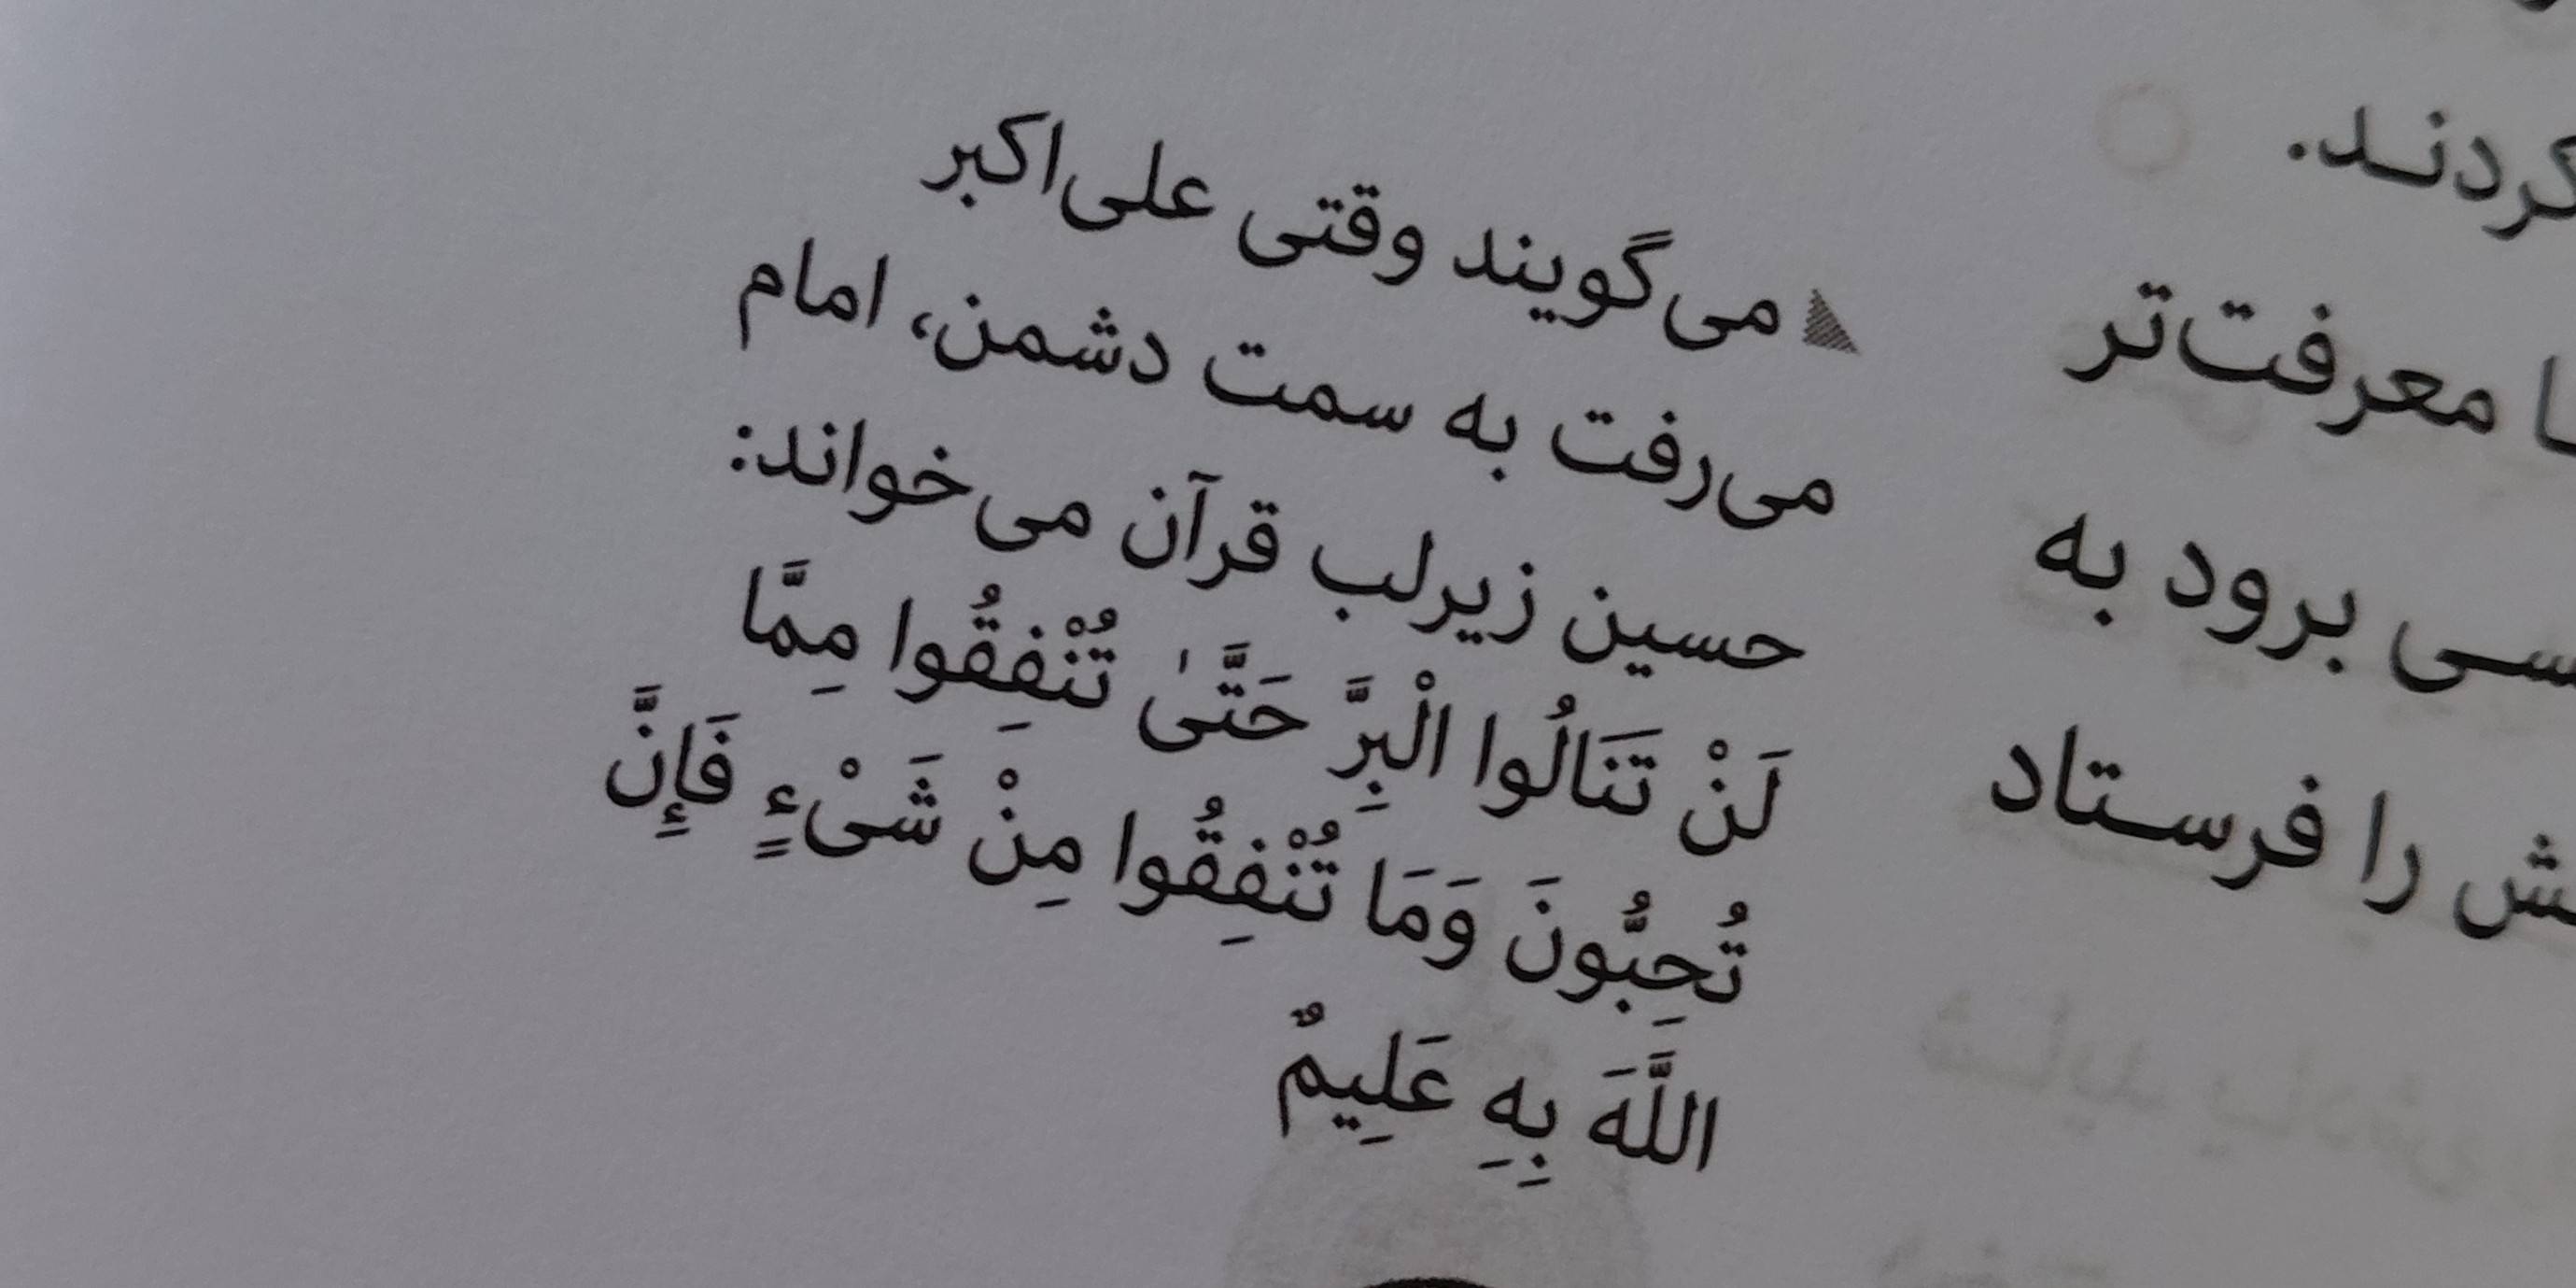 کردند.
معرفت‌تر
برود به
را فرستاد
می‌گویند وقتی علی‌اکبر
می‌رفت به سمت دشمن، امام
حسین زیرلب قرآن می‌خواند:
لَنْ تَنَالُوا الْبِرَّ حَتَّىٰ تُنْفِقُوا مِمَّا
تُحِبُّونَ وَمَا تُنْفِقُوا مِنْ شَیْءٍ فَإِنَّ
اللَّهَ بِهِ عَلِیمٌ